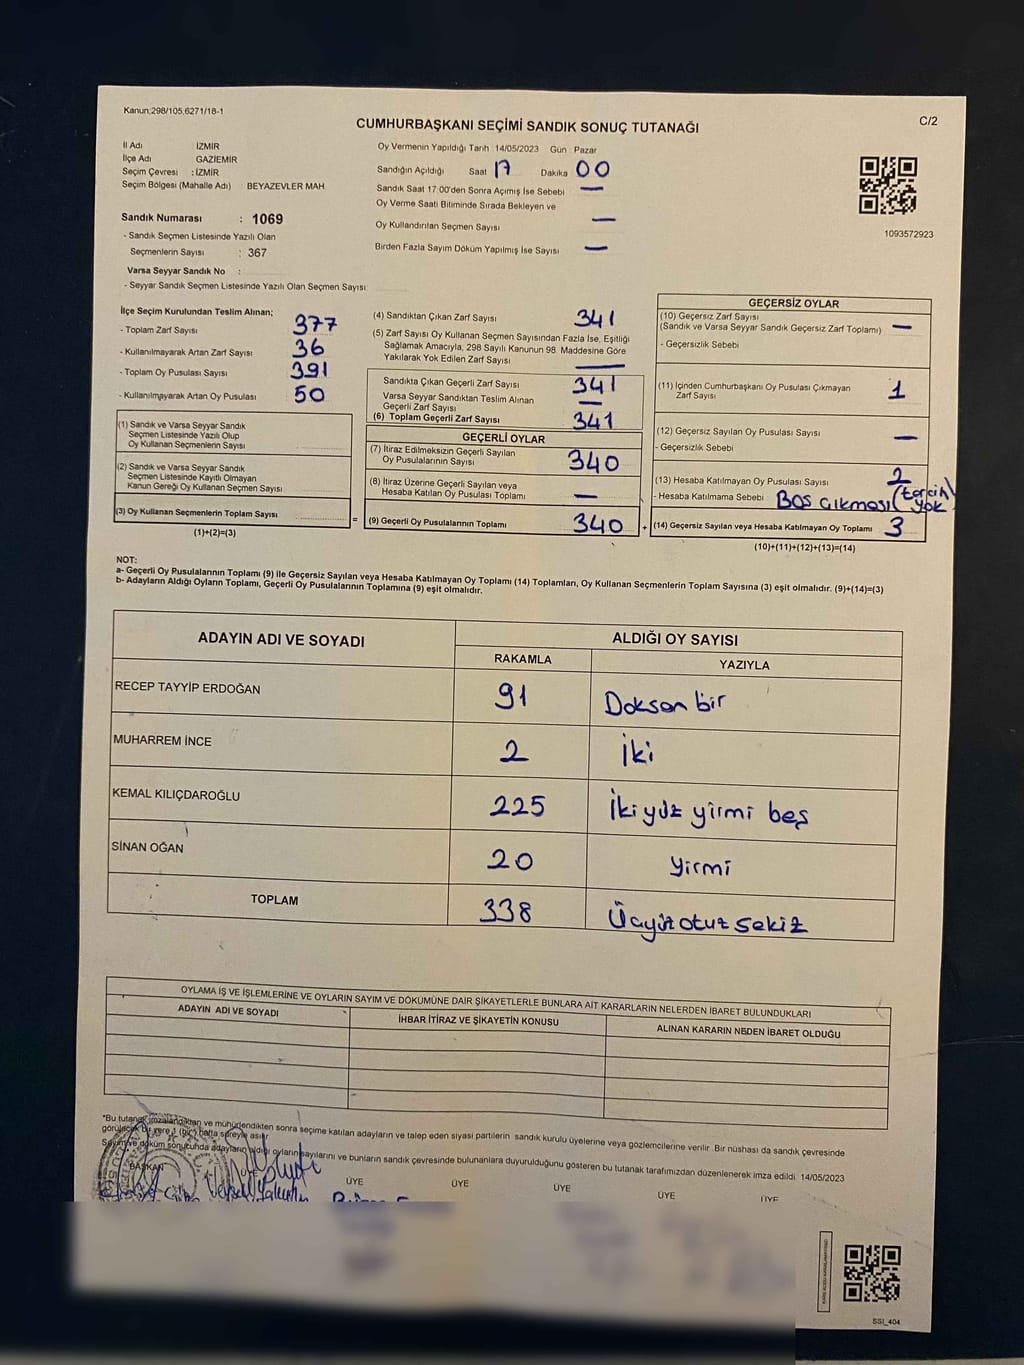 Kanun,298/105,6271/18-1
C/2
CUMHURBAŞKANI SEÇİMİ SANDIK SONUÇ TUTANAĞI
İl Adı İZMİR
İlçe Adı GAZİEMİR
Seçim Çevresi : İZMİR
Seçim Bölgesi (Mahalle Adı) BEYAZEVLER MAH
Sandık Numarası : 1069
- Sandık Seçmen Listesinde Yazılı Olan
Seçmenlerin Sayısı : 367
Varsa Seyyar Sandık No :
- Seyyar Sandık Seçmen Listesinde Yazılı Olan Seçmen Sayısı
Oy Vermenin Yapıldığı Tarih : 14/05/2023 Gün : Pazar
Sandığın Açıldığı Saat 17 Dakika 00
Sandık Saat 17:00'den Sonra Açımış İse Sebebi —
Oy Verme Saati Bitiminde Sırada Bekleyen ve
Oy Kullandırılan Seçmen Sayısı —
Birden Fazla Sayım Döküm Yapılmış İse Sayısı —
1093572923
İlçe Seçim Kurulundan Teslim Alınan;
- Toplam Zarf Sayısı 377
- Kullanılmayarak Artan Zarf Sayısı 36
- Toplam Oy Pusulası Sayısı 391
- Kullanılmayarak Artan Oy Pusulası 50
(1) Sandık ve Varsa Seyyar Sandık
Seçmen Listesinde Yazılı Olup
Oy Kullanan Seçmenlerin Sayısı
(2) Sandık ve Varsa Seyyar Sandık
Seçmen Listesinde Kayıtlı Olmayan
Kanun Gereği Oy Kullanan Seçmen Sayısı
(3) Oy Kullanan Seçmenlerin Toplam Sayısı
(1)+(2)=(3)
(4) Sandıktan Çıkan Zarf Sayısı 341
(5) Zarf Sayısı Oy Kullanan Seçmen Sayısından Fazla İse, Eşitliği
Sağlamak Amacıyla, 298 Sayılı Kanunun 98. Maddesine Göre
Yakılarak Yok Edilen Zarf Sayısı —
Sandıkta Çıkan Geçerli Zarf Sayısı 341
Varsa Seyyar Sandıktan Teslim Alınan
Geçerli Zarf Sayısı —
(6) Toplam Geçerli Zarf Sayısı 341
GEÇERLİ OYLAR
(7) İtiraz Edilmeksizin Geçerli Sayılan
Oy Pusulalarının Sayısı 340
(8) İtiraz Üzerine Geçerli Sayılan veya
Hesaba Katılan Oy Pusulası Toplamı —
= (9) Geçerli Oy Pusulalarının Toplamı 340 +
GEÇERSİZ OYLAR
(10) Geçersiz Zarf Sayısı
(Sandık ve Varsa Seyyar Sandık Geçersiz Zarf Toplamı) —
- Geçersizlik Sebebi
(11) İçinden Cumhurbaşkanı Oy Pusulası Çıkmayan
Zarf Sayısı 1
(12) Geçersiz Sayılan Oy Pusulası Sayısı —
- Geçersizlik Sebebi
(13) Hesaba Katılmayan Oy Pusulası Sayısı 2
- Hesaba Katılmama Sebebi Boş çıkması (tercih yok)
(14) Geçersiz Sayılan veya Hesaba Katılmayan Oy Toplamı 3
(10)+(11)+(12)+(13)=(14)
NOT:
a- Geçerli Oy Pusulalarının Toplamı (9) ile Geçersiz Sayılan veya Hesaba Katılmayan Oy Toplamı (14) Toplamları, Oy Kullanan Seçmenlerin Toplam Sayısına (3) eşit olmalıdır. (9)+(14)=(3)
b- Adayların Aldığı Oyların Toplamı, Geçerli Oy Pusulalarının Toplamına (9) eşit olmalıdır.
ADAYIN ADI VE SOYADI ALDIĞI OY SAYISI
RAKAMLA YAZIYLA
RECEP TAYYİP ERDOĞAN 91 Doksan bir
MUHARREM İNCE 2 İki
KEMAL KILIÇDAROĞLU 225 İkiyüz yirmi beş
SİNAN OĞAN 20 yirmi
TOPLAM 338 Üçyüz otuz sekiz
OYLAMA İŞ VE İŞLEMLERİNE VE OYLARIN SAYIM VE DÖKÜMÜNE DAİR ŞİKAYETLERLE BUNLARA AİT KARARLARIN NELERDEN İBARET BULUNDUKLARI
ADAYIN ADI VE SOYADI İHBAR İTİRAZ VE ŞİKAYETİN KONUSU ALINAN KARARIN NEDEN İBARET OLDUĞU
*Bu tutanak imzalandıktan ve mühürlendikten sonra seçime katılan adayların ve talep eden siyasi partilerin sandık kurulu üyelerine veya gözlemcilerine verilir. Bir nüshası da sandık çevresinde
görülecek bir yere 1 (bir) hafta süreyle asılır
Sayım ve döküm sonucunda adayların aldığı oyların sayılarını ve bunların sandık çevresinde bulunanlara duyurulduğunu gösteren bu tutanak tarafımızdan düzenlenerek imza edildi. 14/05/2023
BAŞKAN ÜYE ÜYE ÜYE ÜYE ÜYE
SSI_404